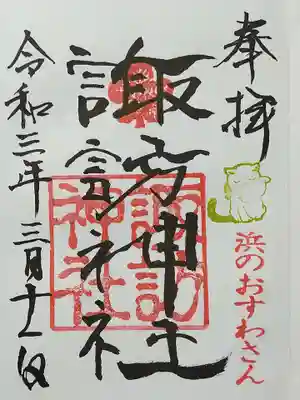 奉拝
浜のおすわさん
諏訪神社
諏訪神社
令和三年三月十一日